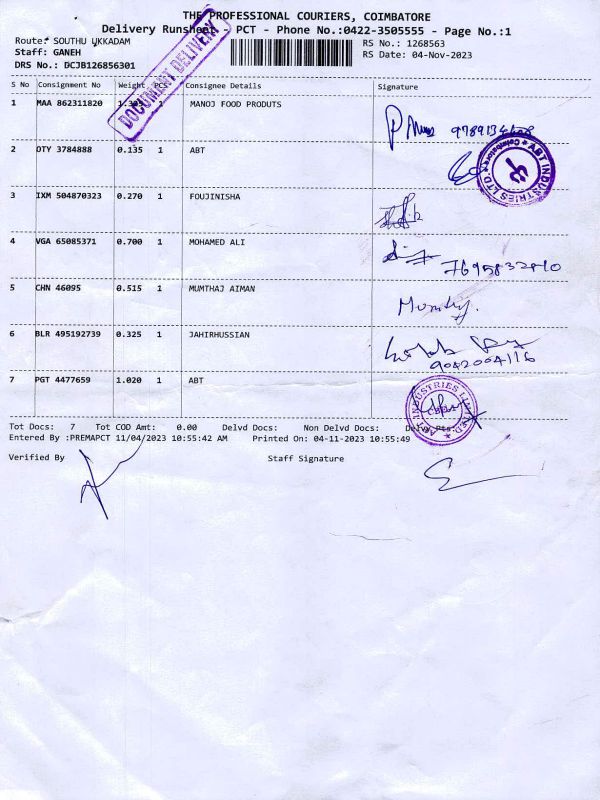 THE PROFESSIONAL COURIERS, COIMBATORE
Delivery Runsheet - PCT - Phone No.:0422-3505555 - Page No.:1
Route: SOUTHU UKKADAM
RS No.: 1268563
Staff: GANEH
RS Date: 04-Nov-2023
DRS No.: DCJB126856301
DOCUMENT DELIVERY
S No Consignment No Weight PCS Consignee Details Signature
1 MAA 862311820 1 MANOJ FOOD PRODUTS
2 OTY 3784888 0.135 1 ABT
ABT INDUSTRIES LTD * Coimbatore *
3 IXM 504870323 0.270 1 FOUJINISHA
4 VGA 65085371 0.700 1 MOHAMED ALI
5 CHN 46095 0.515 1 MUMTHAJ AIMAN
6 BLR 495192739 0.325 1 JAHIRHUSSIAN
9042004116
7 PGT 4477659 1.020 1 ABT
ABT INDUSTRIES LIMITED
Tot Docs: 7 Tot COD Amt: 0.00 Delvd Docs: Non Delvd Docs:
Entered By :PREMAPCT 11/04/2023 10:55:42 AM Printed On: 04-11-2023 10:55:49
Verified By Staff Signature